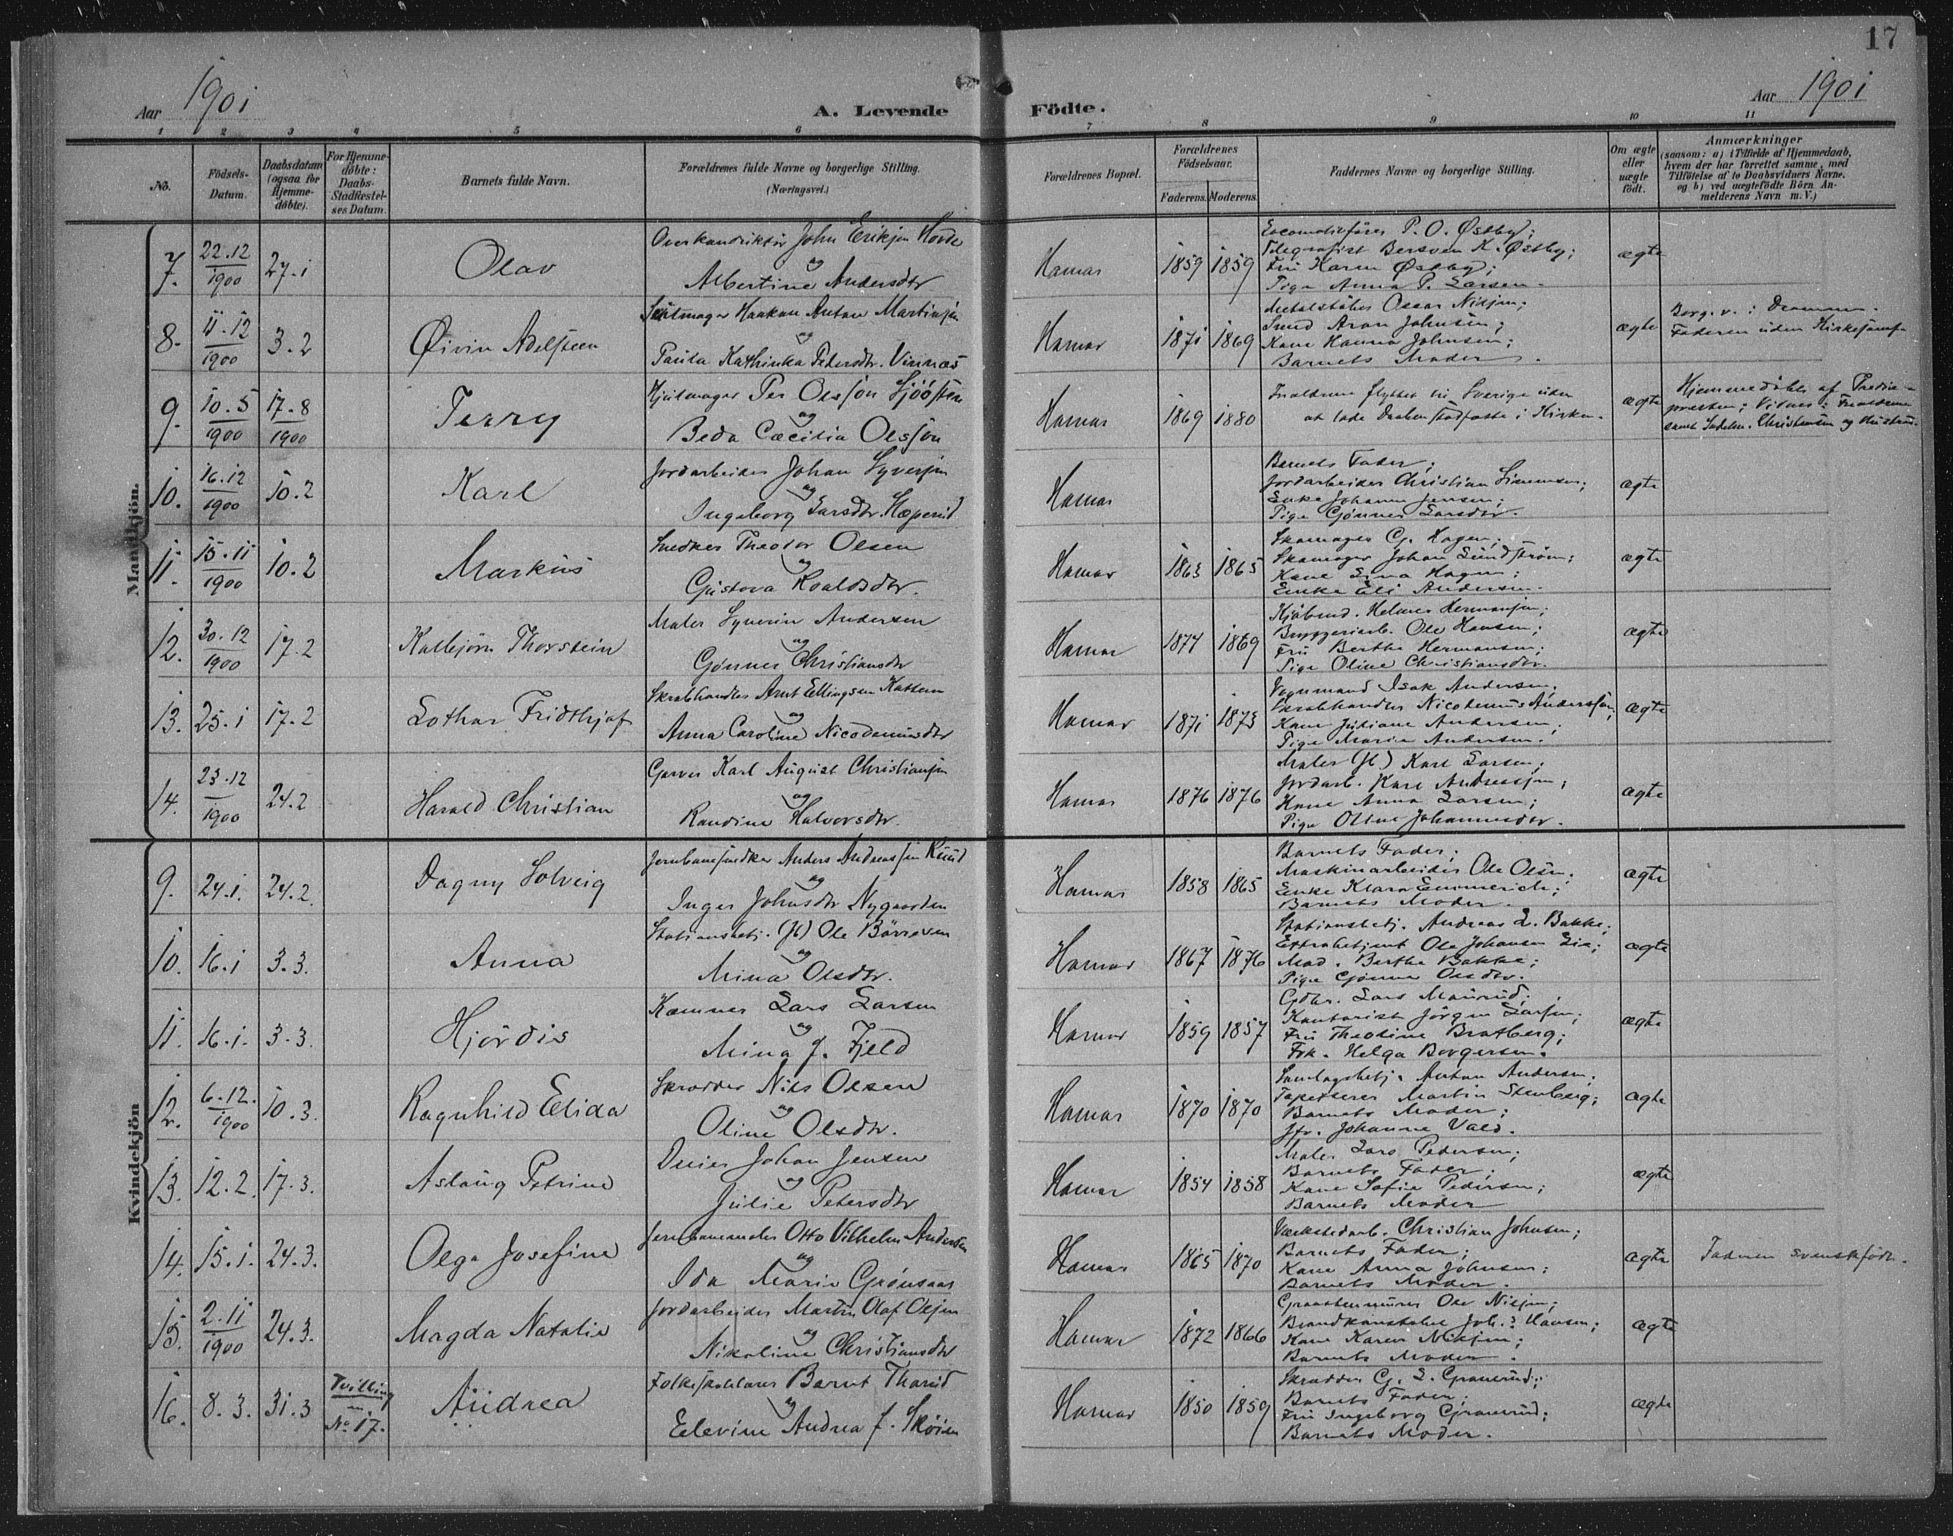 17
Aar 1901
A. Levende Födte.
Aar 1901
1 2 3 4 5 6 7 8 9 10 11
No. Födsels-Datum. Daabsdatum (ogsaa for Hjemme-döbte). For Hjemme-döbte: Daabs-Stadfæstel-ses Datum. Barnets fulde Navn. Forældrenes fulde Navne og borgerlige Stilling. (Næringsvei.) Forældrenes Bopæl. Forældrenes Födselsaar. Faderens. Moderens. Faddernes Navne og borgerlige Stilling. Om ægte eller uægte födt. Anmærkninger (saasom: a) i Tilfælde af Hjemmedaab, hvem der har forrettet samme, med Tilföielse af to Daabsvidners Navne. og b) ved uægtefödte Börn An-melderens Navn m. V.)
Mandkjön.
7. 22.12 1900 27.1 Olav
Overkonduktør John Eriksen Hovde
og
Albertine Andersdtr
Hamar 1859 1859
Locomotivfører P. O. Østby;
Telegrafist Bersven K. Østby;
Fru Karen Østby;
Pige Anna P. Larsen.
ægte
8. 11.12 1900 3.2 Øivin Adelsteen
Haakon Anton Martinsen
og
Paula Kathinka Petersdtr. Vinnæs
Hamar 1871 1869
Metalstøber Oscar Nilsen;
Smed Aron Johnsen;
Kone Hanna Johnsen;
Barnets Moder.
ægte
Borg. v. i Drammen.
Faderen uden Kirkesamf.
9. 10.5 1900 17.8 1900 Terry
Hjulmager Per Olsson Sjöösten
og
Beda Cæcilia Olsson
Hamar 1869 1880
Forældrene flyttet til Sverige uden
at lade Daaben stadfæste i Kirken.
ægte
Hjemmedøbt af
Forældrene
samt Christensen og Hustru.
10. 16.12 1900 10.2 Karl
Jordarbeider Johan Syversen
og
Ingeborg Larsdtr. Hæperud
Hamar
Barnets Fader;
Jordarbeider Christian Simensen;
Enke Johanne Jensen;
Pige Gjønner Larsdtr.
ægte
11. 15.11 1900 10.2 Markus
Snedker Theodor Olsen
og
Gustava Roaldsdtr.
Hamar 1863 1865
Skomager G. Hagen;
Skomager Johan Sundstrøm;
Kone Lina Hagen;
Enke Eli Andersen.
ægte
12. 30.12 1900 17.2 Kolbjørn Thorstein
Maler Syverin Andersen
og
Gønner Christiansdtr
Hamar 1874 1869
Kjøbmd. Helmer Hermansen;
Bryggeriarb. Ole Hansen;
Fru Berthe Hermansen;
Pige Oline Christiansdtr.
ægte
13. 25.1 17.2 Lothar Fridthjof
Skrabhandler Arnt Ellingsen
og
Anna Caroline Nicodemusdtr
Hamar 1871 1873
Vognmand Isak Andersen,
Skrabhandler Nicodemus Anderssen,
Kone Juliane Andersen;
Pige Marie Andersen.
ægte
14. 23.12 1900 24.2 Harald Christian
Garver Karl August Christiansen
og
Randine Halvorsdtr.
Hamar 1876 1876
Maler Karl Larsen;
Jordarb. Karl Andreassen;
Kone Anna Larsen;
Pige Oline Johannesdtr.
ægte
Kvindekjön
9. 24.1. 24.2. Dagny Solveig
Jernbanesnedker Anders Andreassen Ruud
og
Inger Johnsdtr Nygaarden
Hamar 1858 1865
Barnets Fader;
Maskinarbeider Ole Olsen;
Enke Klara Emmerich;
Barnets Moder.
ægte
10. 16.1 3.3. Anna
Stationsbetj. Ole Børresen
og
Mina Olsdtr.
Hamar 1867 1876
Stationsbetj. Andreas L. Bakke;
Extrabetjent Ole Johansen Lie;
Mad. Berthe Bakke;
Pige Gjønner Olsdtr.
ægte
11. 16.1. 3.3. Hjördis
Kæmner Lars Larsen
og
Mina J. Fjeld
Hamar 1859 1857
Gdbr. Lars Maurud;
Kontorist Jørgen Larsen;
Fru Theodine Bratberg;
Frk. Helga Borgersen.
ægte
12. 6.12. 1900 10.3. Ragnhild Elida
Skrædder Nils Olsen
og
Oline Olsdtr.
Hamar 1870 1870
Samlagsbetj. Anton Andersen;
Tapetserer Martin Stenberg;
Barnets Moder;
Jfr. Johanne Vald.
ægte
13. 12.2. 17.3. Aslaug Petrine
Johan Jensen
og
Julie Petersdtr
Hamar 1854 1858
Maler Lars Pedersen;
Barnets Fader;
Kone Sofie Pedersen;
Barnets Moder
ægte
14. 15.1. 24.3. Olga Josefine
Jernbanemaler Otto Vilhelm Andersen
og
Ida Marie Grønsaas
Hamar 1865 1870
Værkstedarb. Christian Johnsen;
Barnets Fader;
Kone Anna Johnsen;
Barnets Moder.
ægte
Faderen svenskfødt.
15. 2.11 1900 24.3. Magda Natalie
Jordarbeider Martin Olaf Olsen
og
Nikoline Christiansdtr
Hamar 1872 1866
Ole Nilsen;
Brandkonstabel Joh.s Hansen;
Kone Karen Nilsen;
Barnets Moder.
ægte
16. 8.3. 31.3 Tvilling m. No 17. Andrea
Folkeskolelærer Bernt Thorud
og
Edevine Andrea J. Skøien
Hamar 1850 1859
Skrædder G. L. Granerud;
Barnets Fader;
Fru Ingeborg Granerud;
Barnets Moder.
ægte